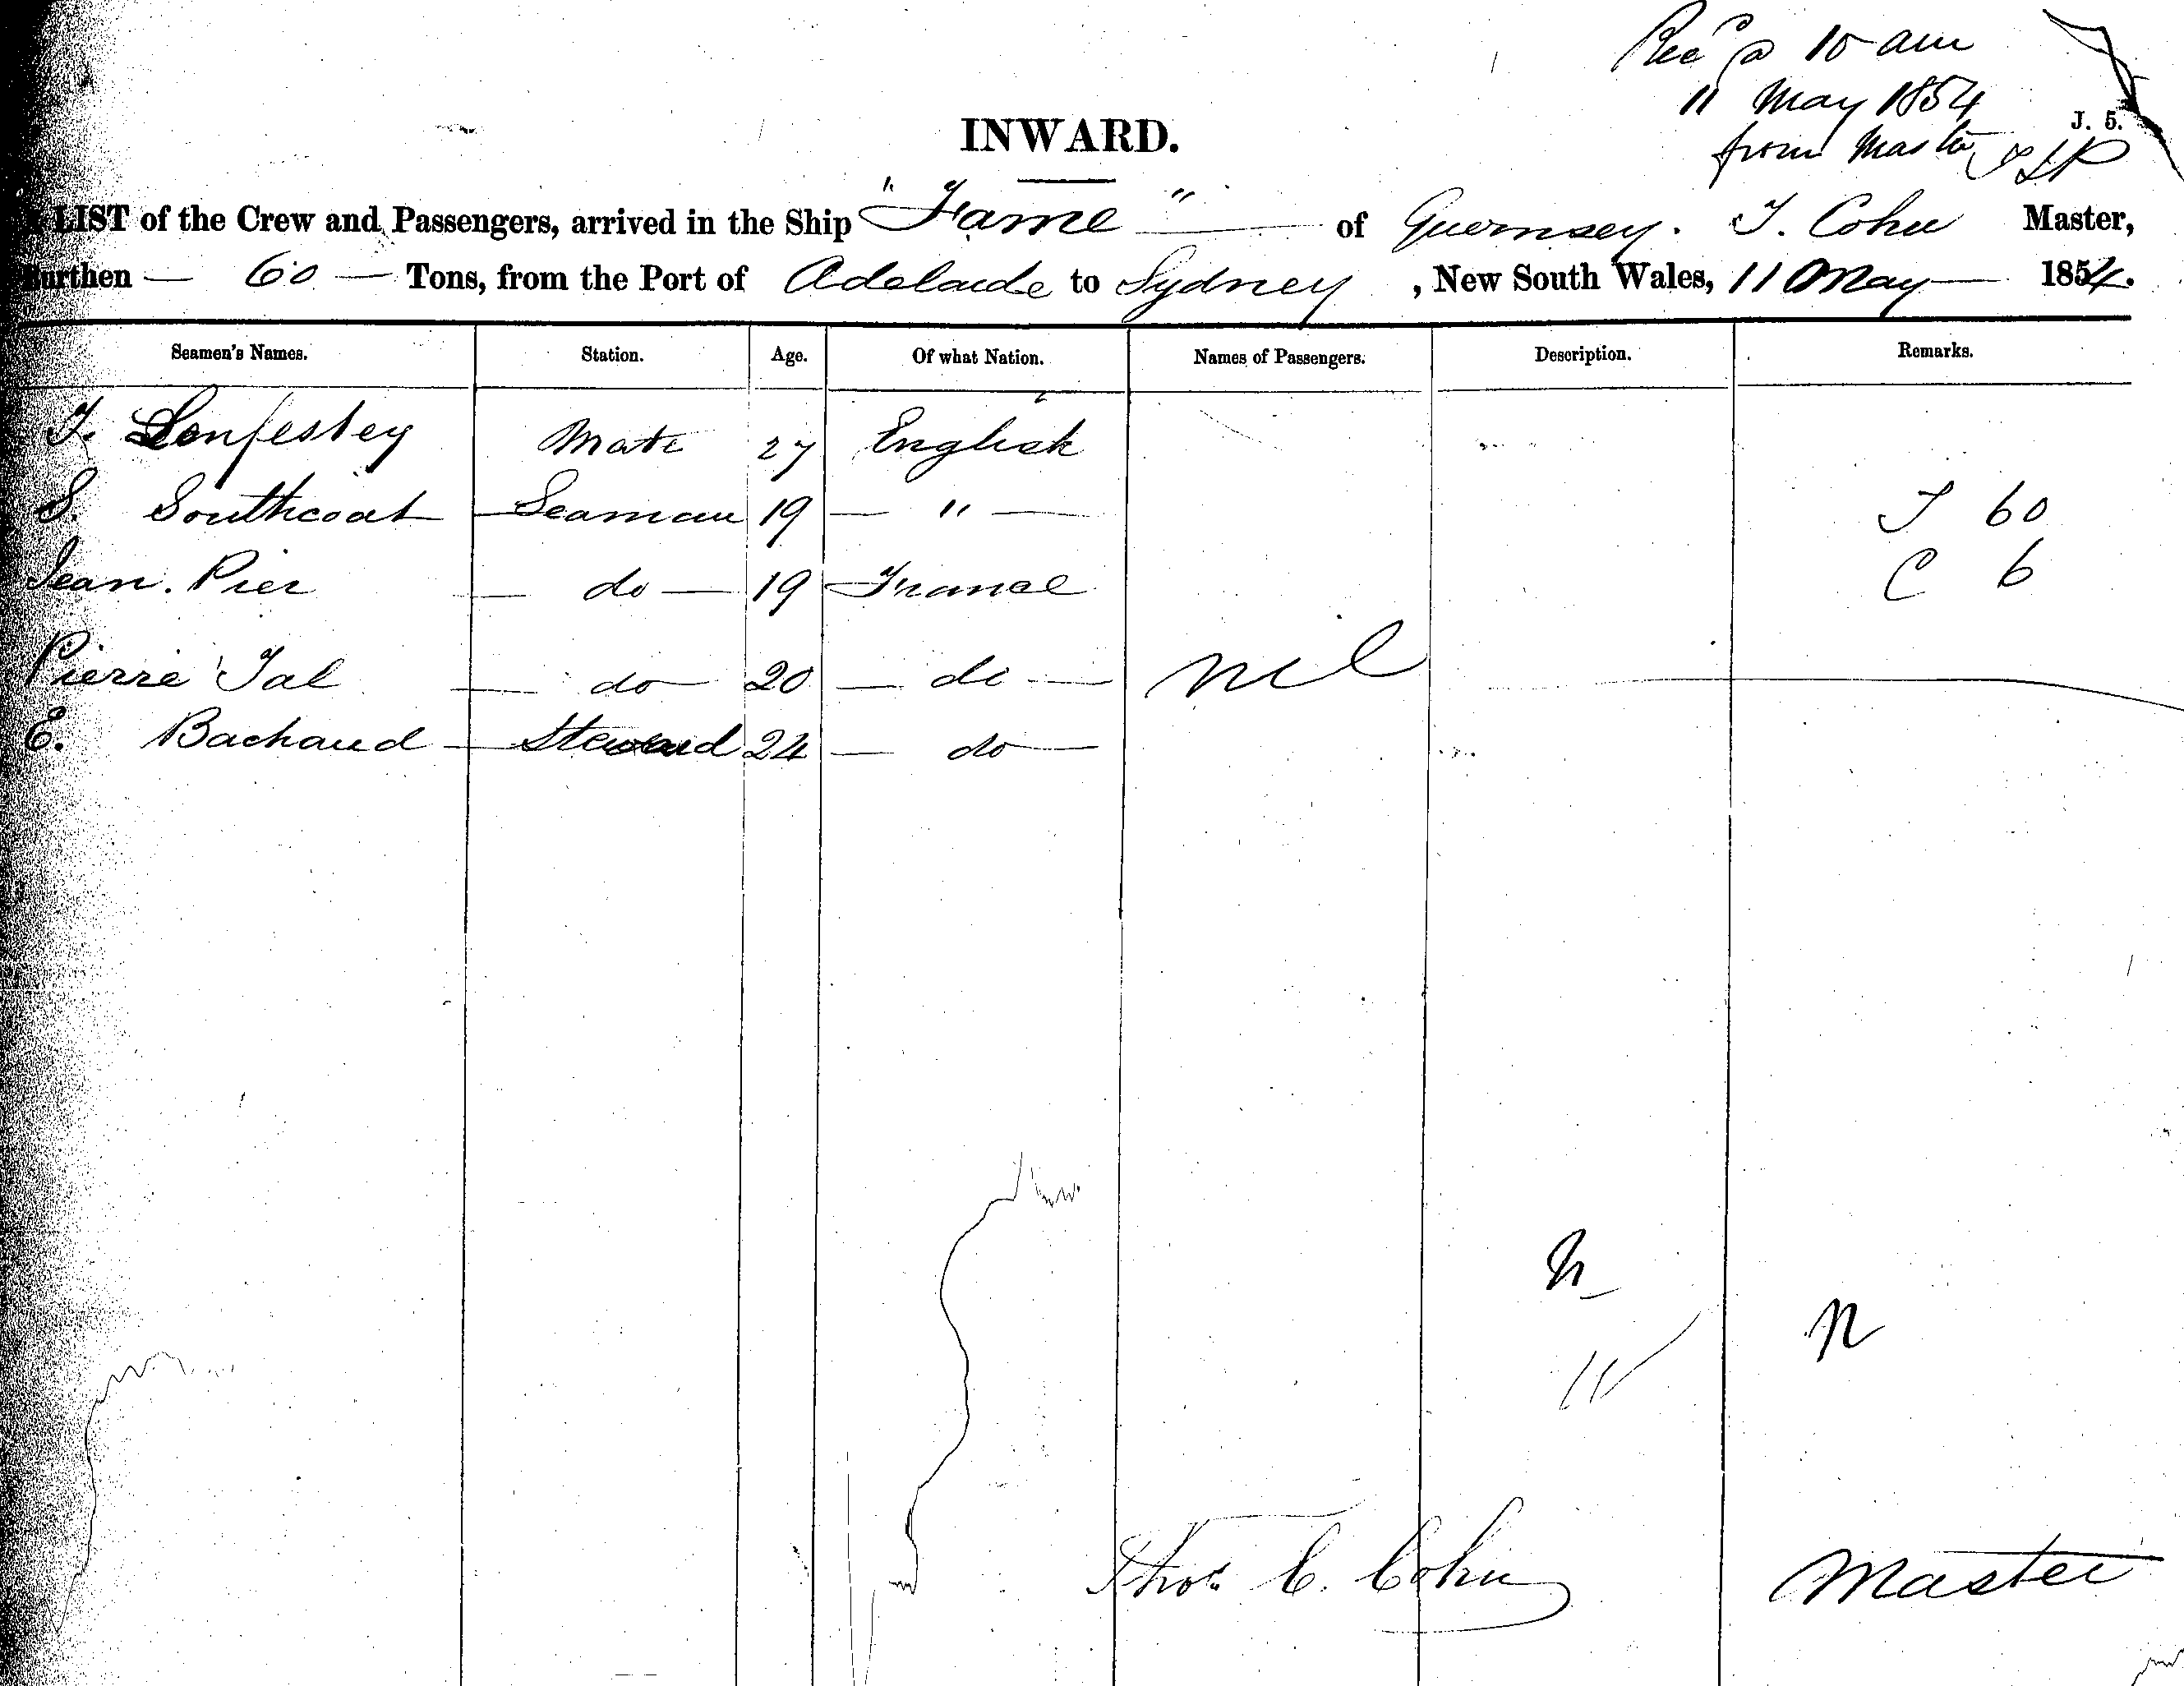 Recd @ 10 am
11 May 1854
from Master
J. 5.
INWARD.
LIST of the Crew and Passengers, arrived in the Ship "Fame" of Guernsey. T. Cohu Master,
Burthen — 60 — Tons, from the Port of Adelaide to Sydney, New South Wales, 11 May 1854.
Seamen's Names. Station. Age. Of what Nation. Names of Passengers. Description. Remarks.
T. Lenfestey Mate 27 English
S. Southcoat Seaman 19 — " — T 60
Jean. Pier — do — 19 France C 6
Pierre Tal — do 20 — do — nil
E. Bachaud — Steward 24 — do —
n
n
Thos. C. Cohu Master